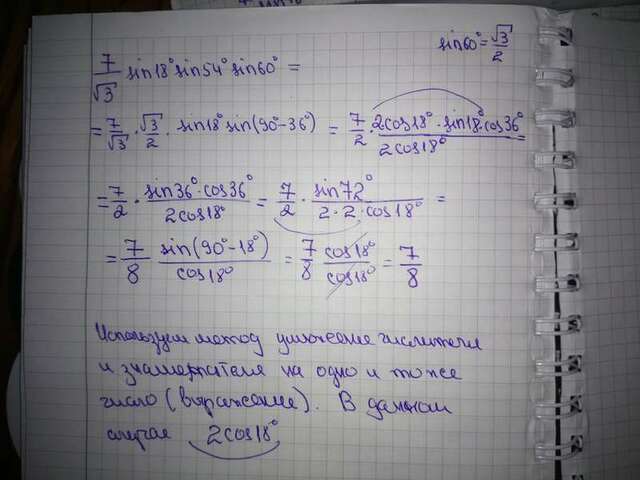 sin60° = √3/2
7/√3 sin18° sin54° sin60° =
= 7/√3 · √3/2 · sin18° sin(90° - 36°) = 7/2 · 2cos18° · sin18° · cos36° / 2cos18° =
= 7/2 · sin36° · cos36° / 2cos18° = 7/2 · sin72° / 2 · 2 · cos18° =
= 7/8 sin(90° - 18°) / cos18° = 7/8 cos18° / cos18° = 7/8
Используем метод умножение числителя
и знаменателя на одно и тоже
число (выражение). В данном
случае 2cos18°